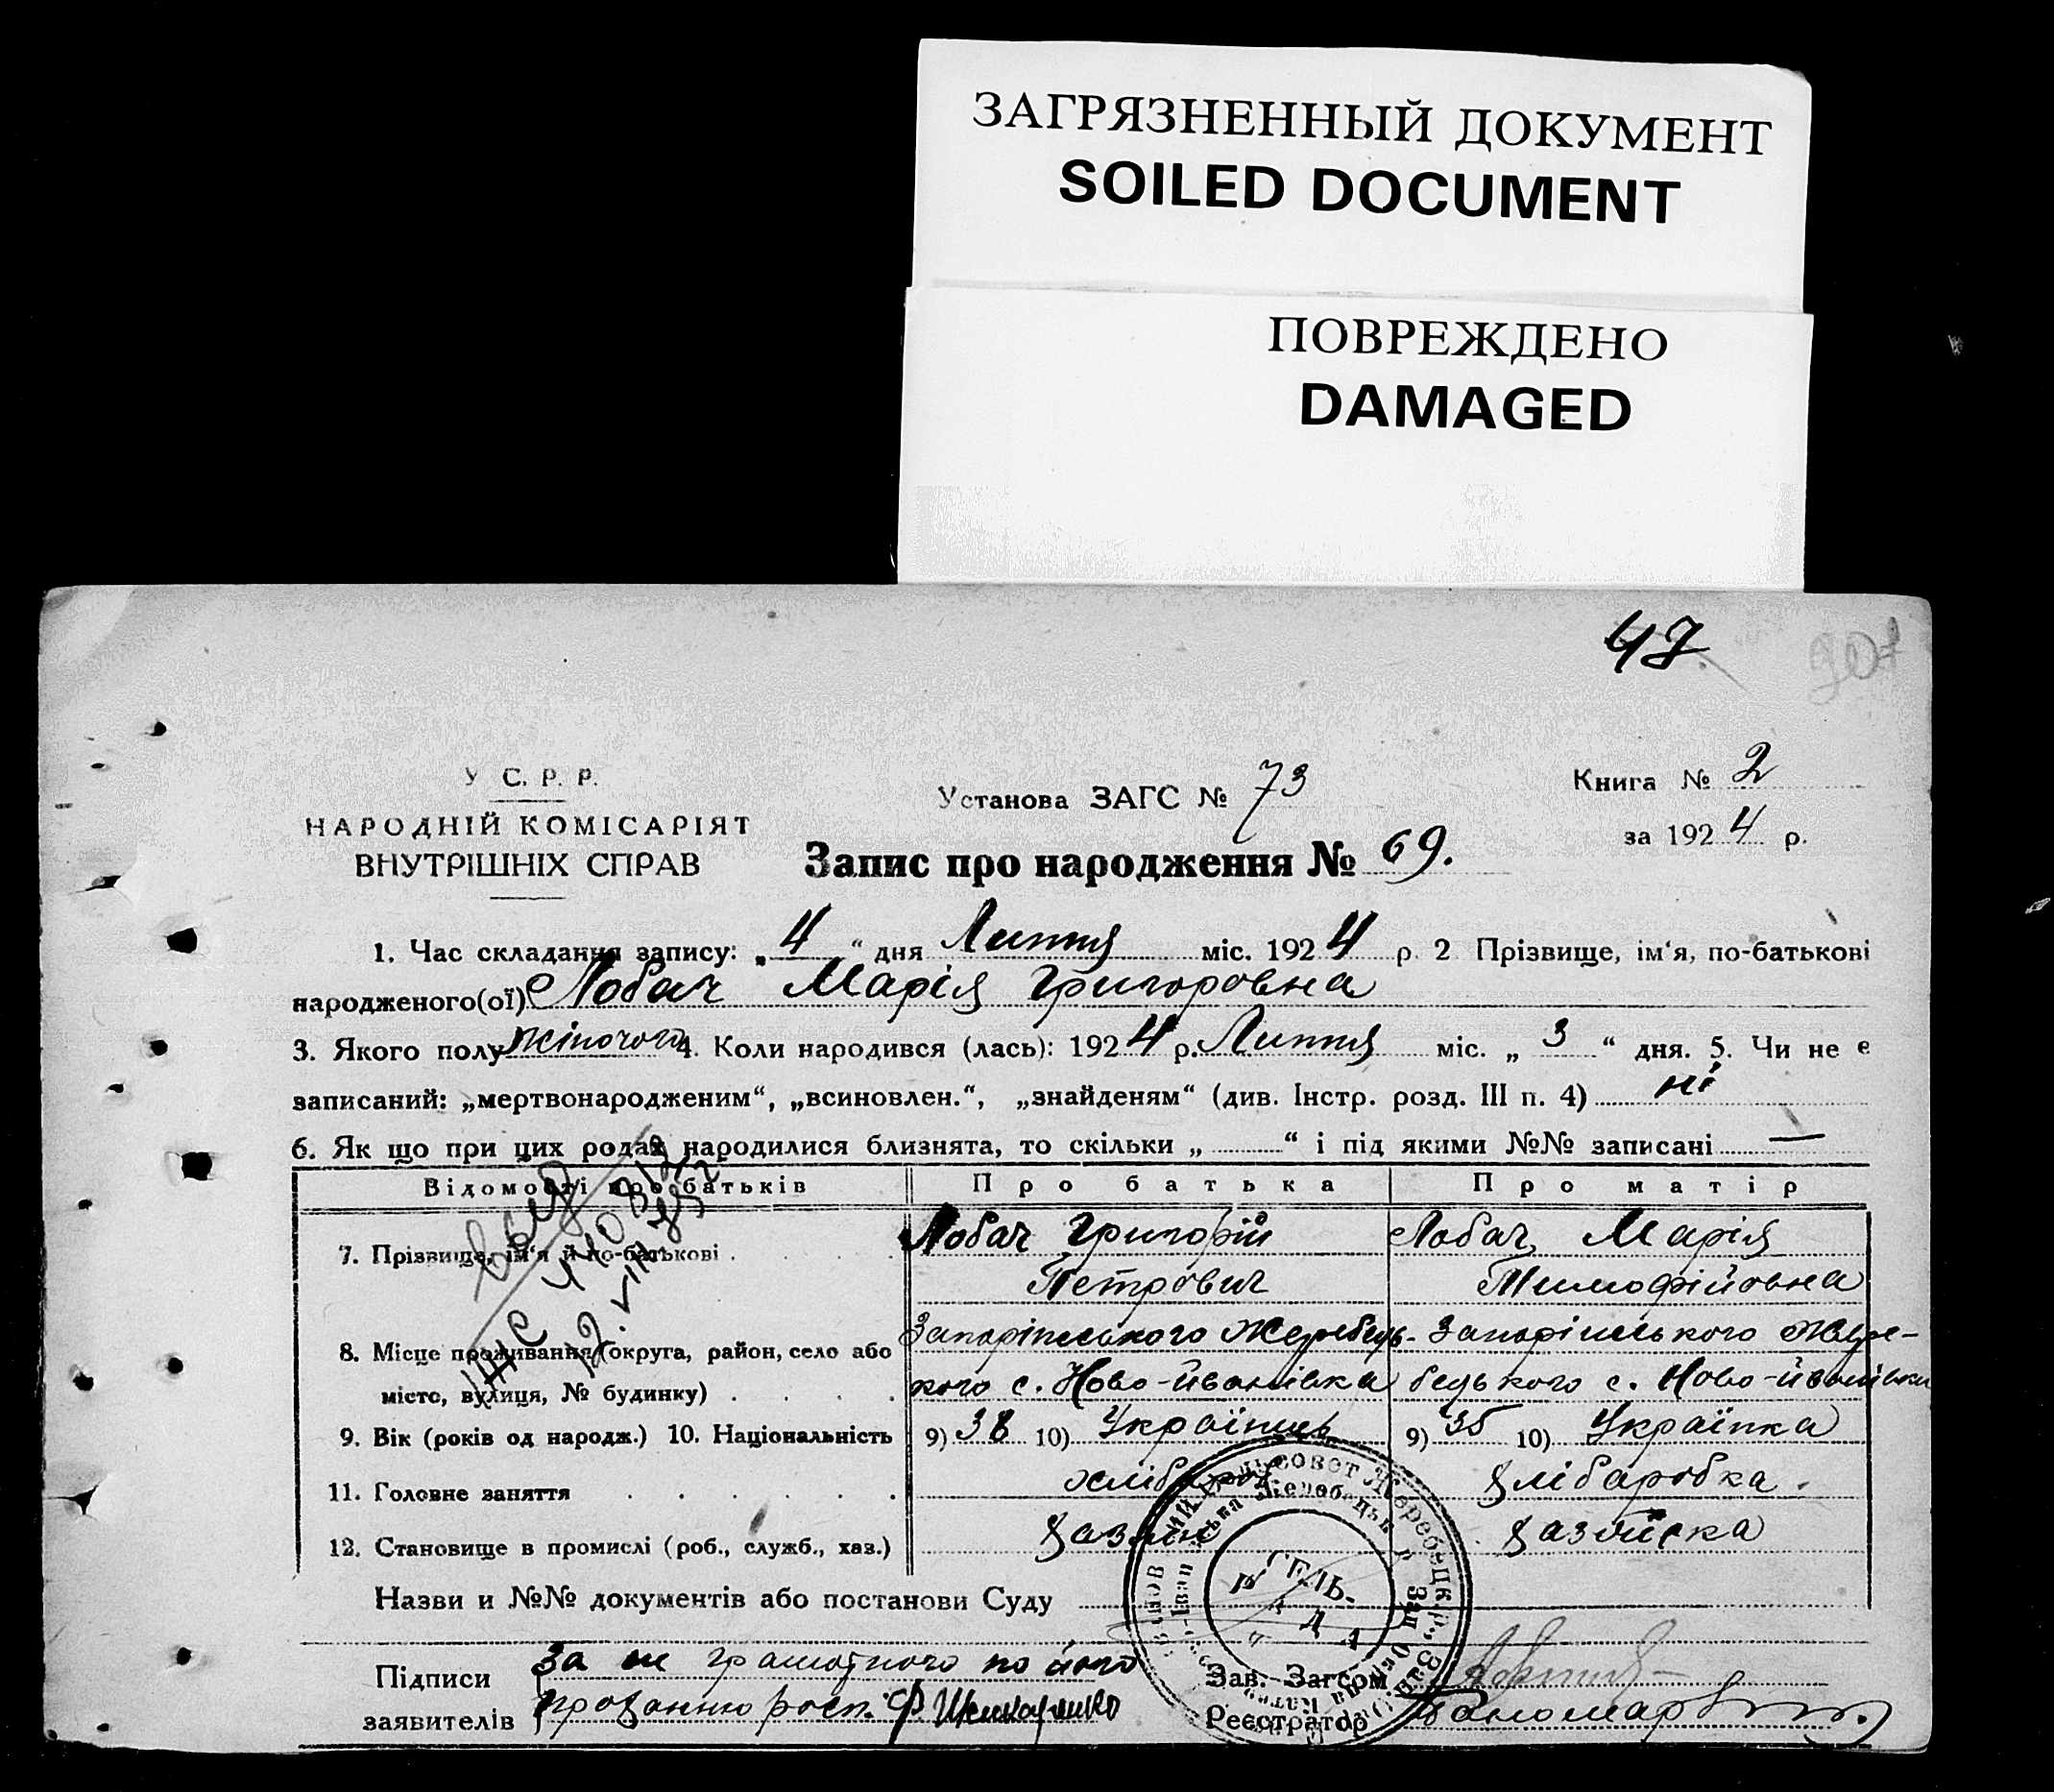 ЗАГРЯЗНЕННЫЙ ДОКУМЕНТ
SOILED DOCUMENT
ПОВРЕЖДЕНО
DAMAGED
47
У С. Р. Р.
НАРОДНІЙ КОМІСАРІЯТ
ВНУТРІШНІХ СПРАВ
Установа ЗАГС № 73
Книга № 2
за 1924 р.
Запис про народження № 69.
1. Час складання запису: „4“ дня Липня міс. 1924 р. 2 Прізвище, ім‘я, по-батькові
народженого(ої) Лобач Марія Григоровна
3. Якого полу жіночого 4. Коли народився (лась): 1924 р. Липня міс. „3“ дня. 5. Чи не є
записаний: „мертвонародженим“, „всиновлен.“, „знайденям“ (див. Інстр. розд. III п. 4) ні
6. Як що при цих родах народилися близнята, то скільки „ “ і під якими №№ записані —
Відомості про батьків Про батька Про матір
7. Прізвище, ім‘я й по-батькові Лобач Григорій Петрович Лобач Марія Тимофійовна
8. Місце проживання (округа, район, село або
місто, вулиця, № будинку) Запоріжського Жеребець-
кого с. Ново-йванівка Запоріжського Жере-
бецького с. Ново-йванівки
9. Вік (років од народж.) 10. Національність 9) 38 10) Українець 9) 35 10) Українка
11. Головне заняття хлібороб хліборобка.
12. Становище в промислі (роб., служб., хаз.) хазяїн хазяйка
Назви и №№ документів або постанови Суду
Підписи
заявителів
За не грамотного по його
проханню росп. Ф.
Зав. Загсом
Реєстратор
СЕЛЬ-
РАДА